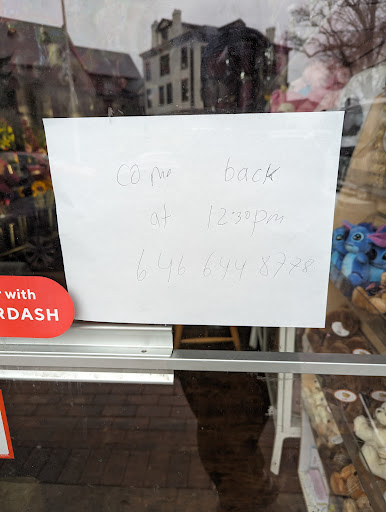 come back
at 12:30pm
646 644 8778
r with
RDASH